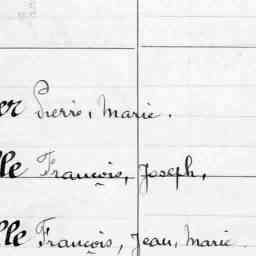 er Pierre, Marie.
lle François, Joseph,
lle François, Jean, Marie